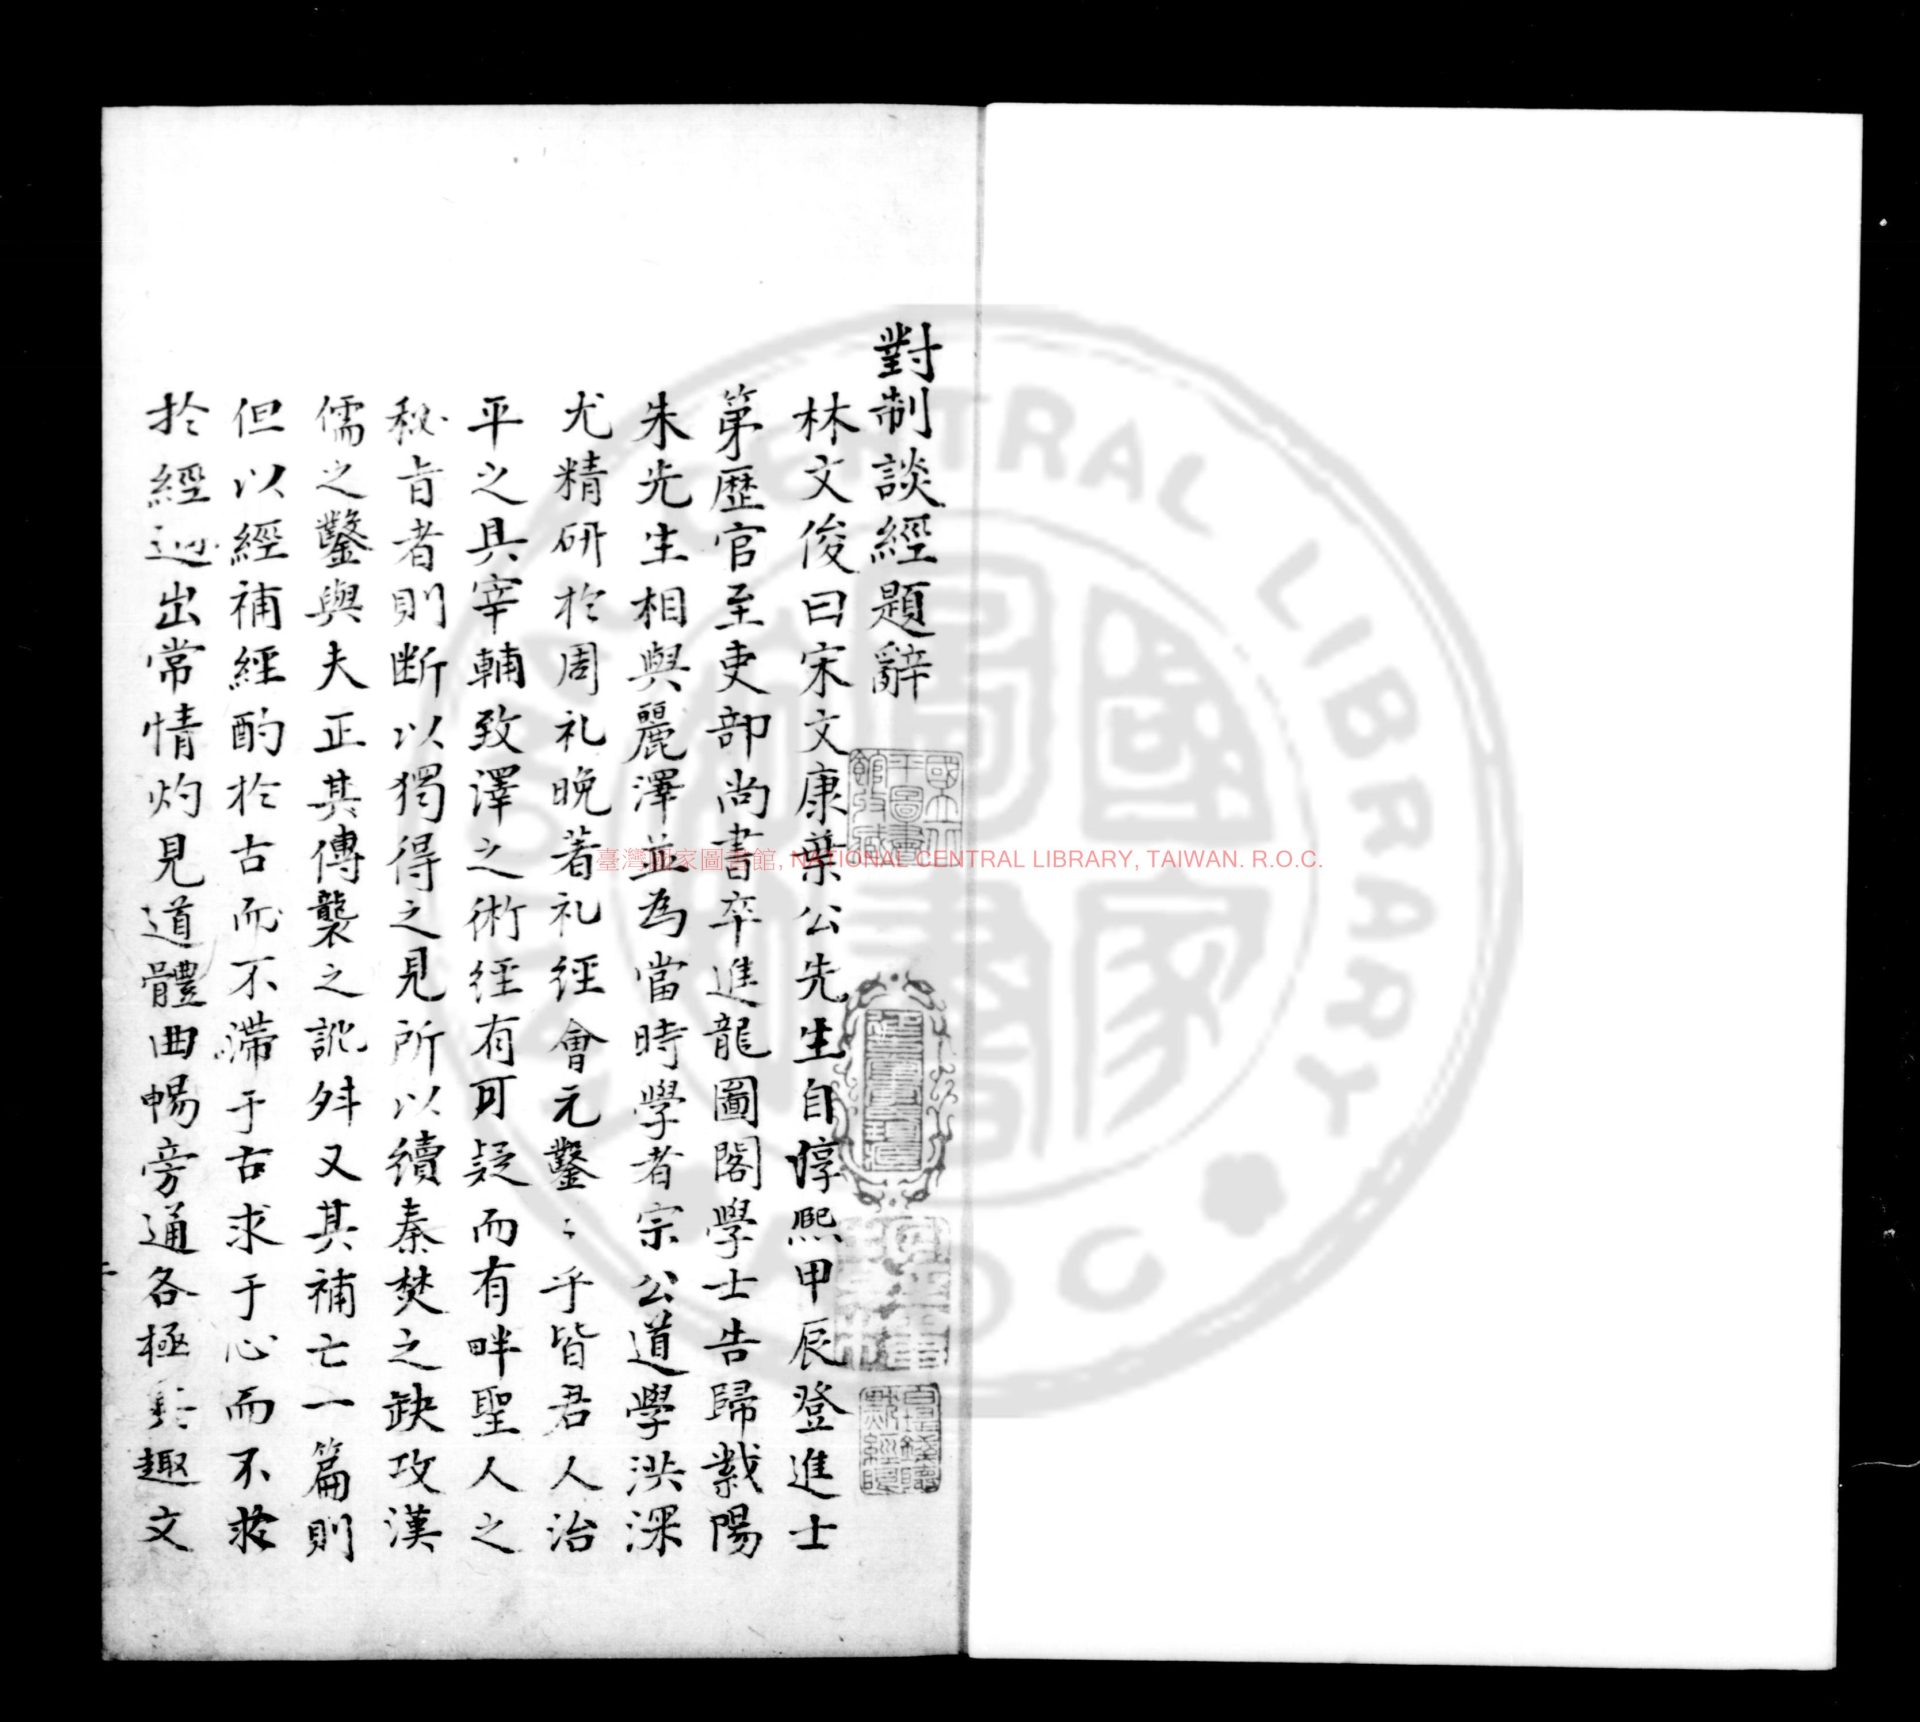 對制談經題辭
林文俊曰宋文康葉公先生自淳熙甲辰登進士
第歷官至吏部尚書卒進龍圖閣學士告歸紫陽
朱先生相與麗澤並為當時學者宗公道學洪深
尤精研於周礼晚著礼經會元鑿〻乎皆君人治
平之具宰輔致澤之術経有可疑而有畔聖人之
秘旨者則断以獨得之見所以續秦焚之缺攻漢
儒之鑿與夫正其傳襲之訛舛又其補亡一篇則
但以經補經酌於古而不滯于古求于心而不
於經迥出常情灼見道體曲暢旁通各極其趣文
國立中央圖書館收藏
臺灣國家圖書館, NATIONAL CENTRAL LIBRARY, TAIWAN. R.O.C.
NATIONAL CENTRAL LIBRARY R.O.C.
國家圖書